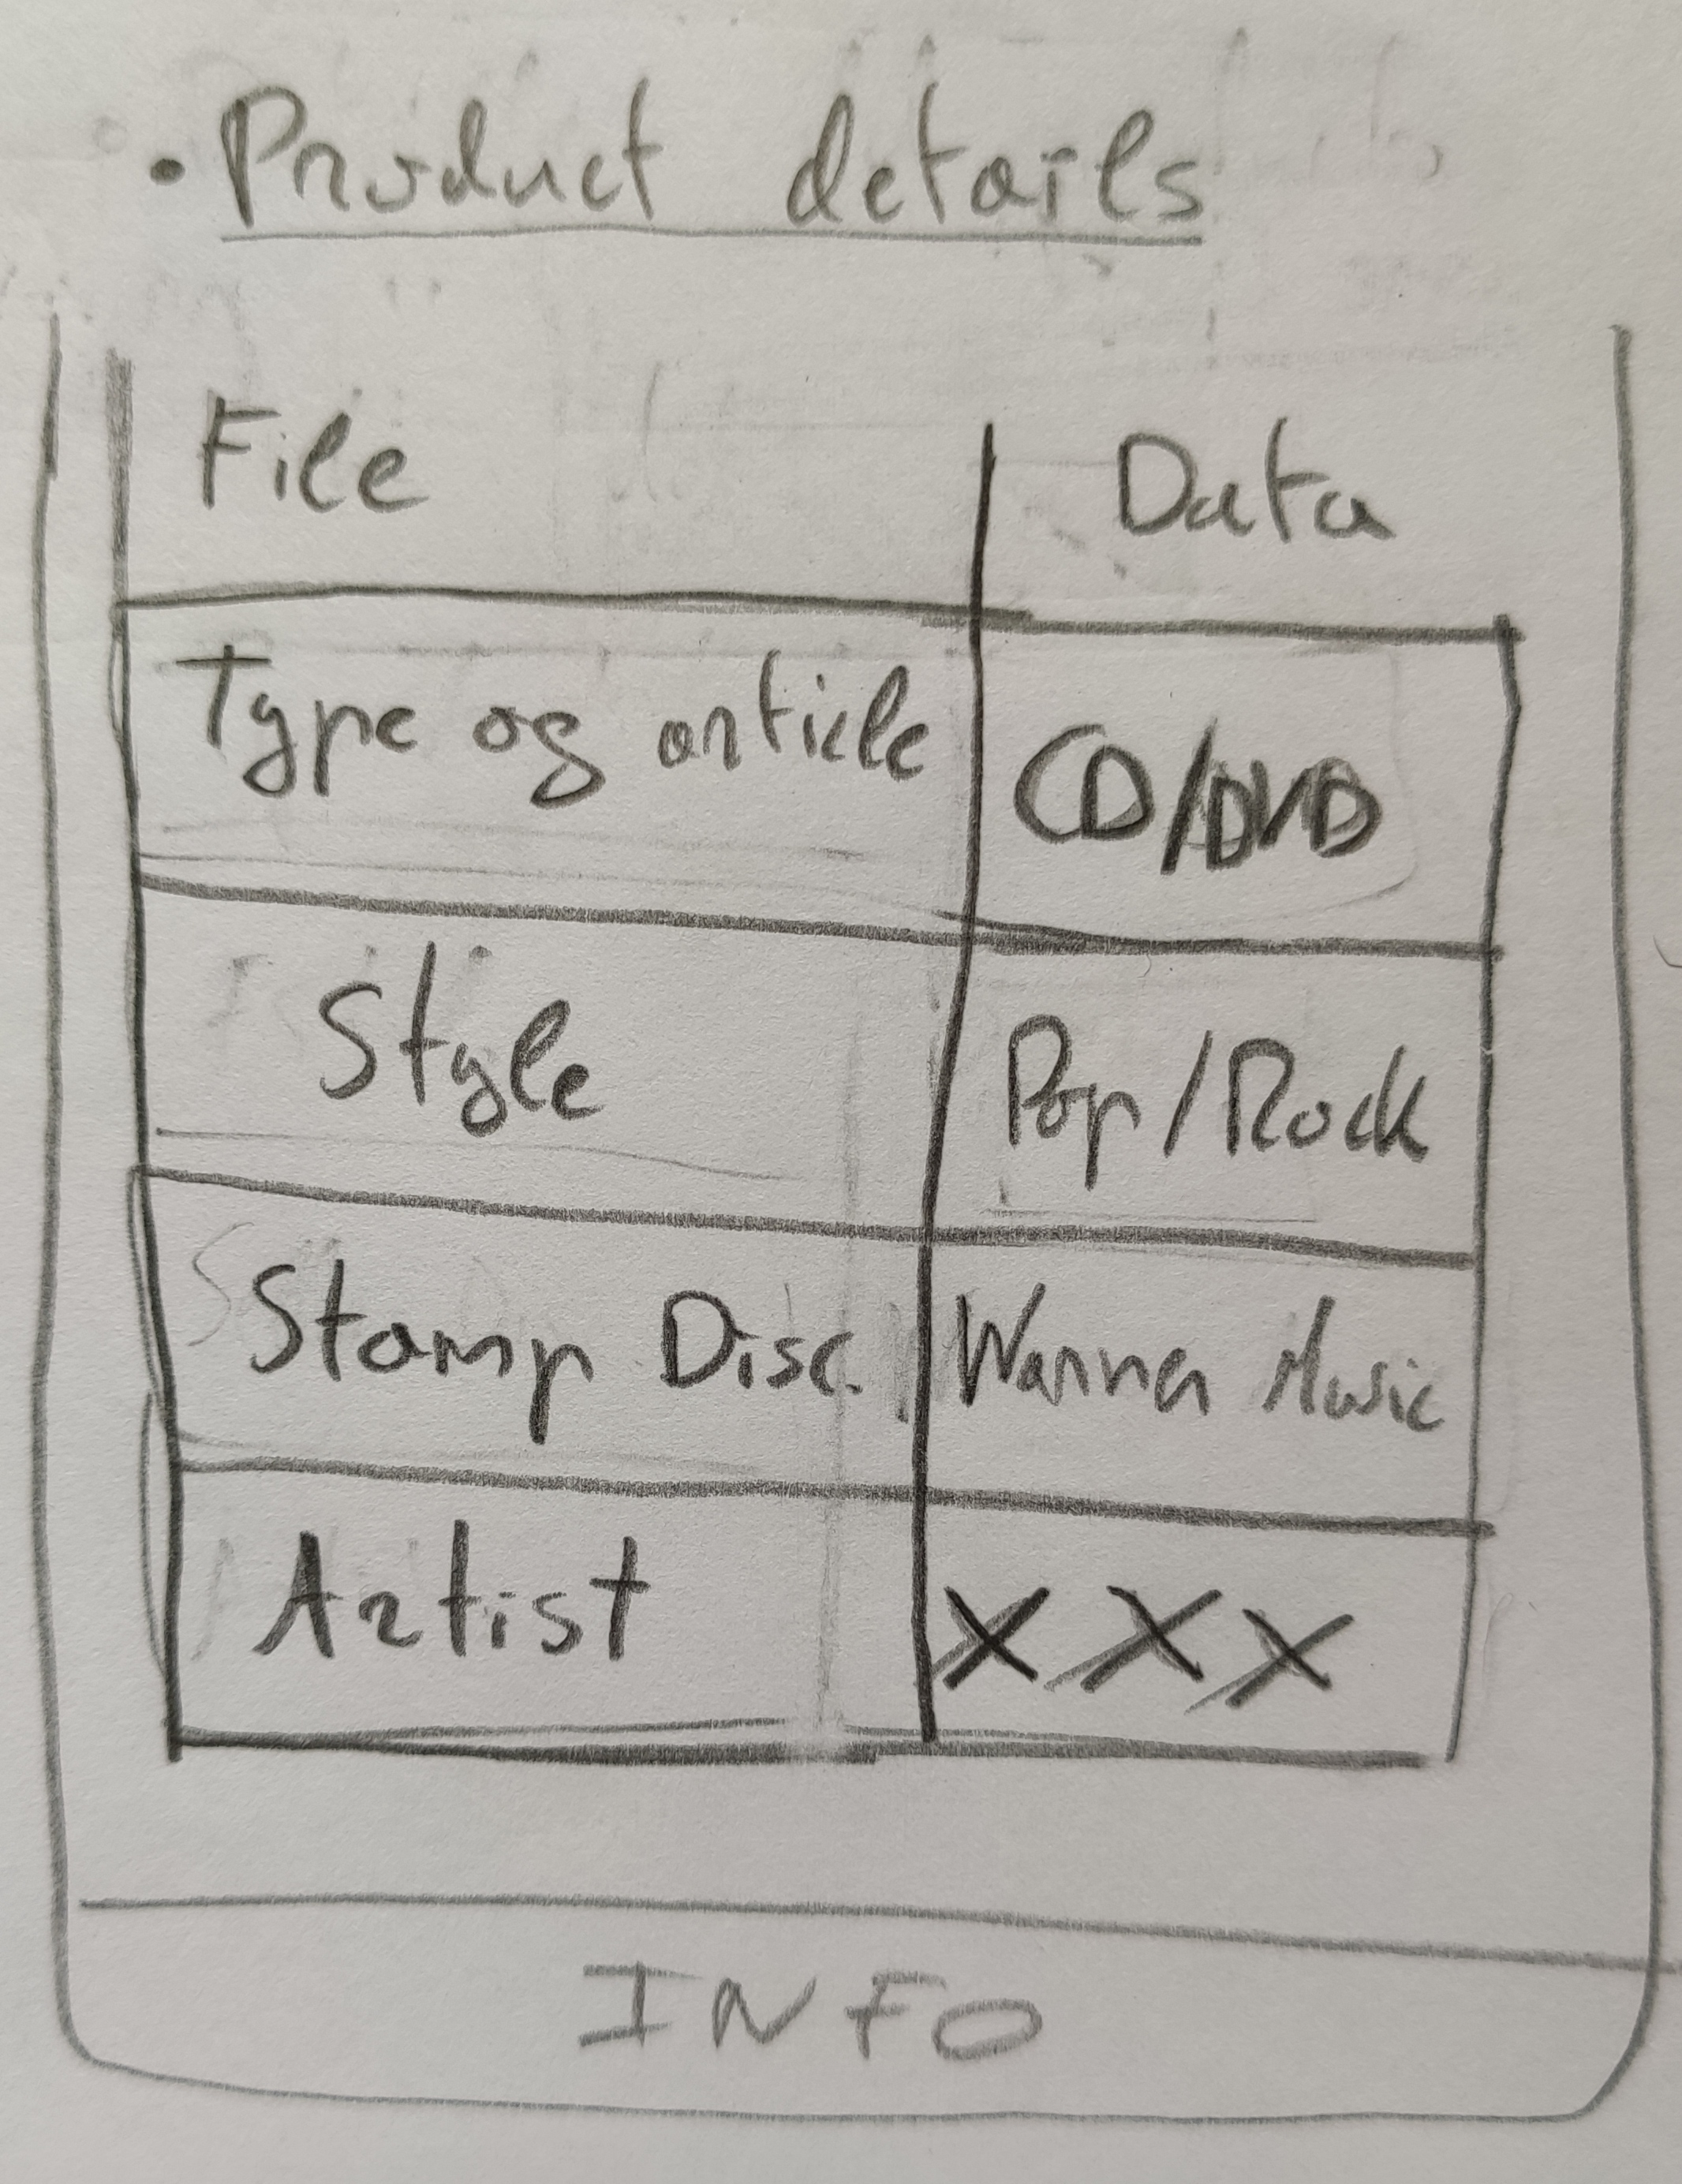 • Product details
File Data
Type og article CD/DVD
Style Pop/Rock
Stamp Disc. Warner Music
Artist XXX
INFO